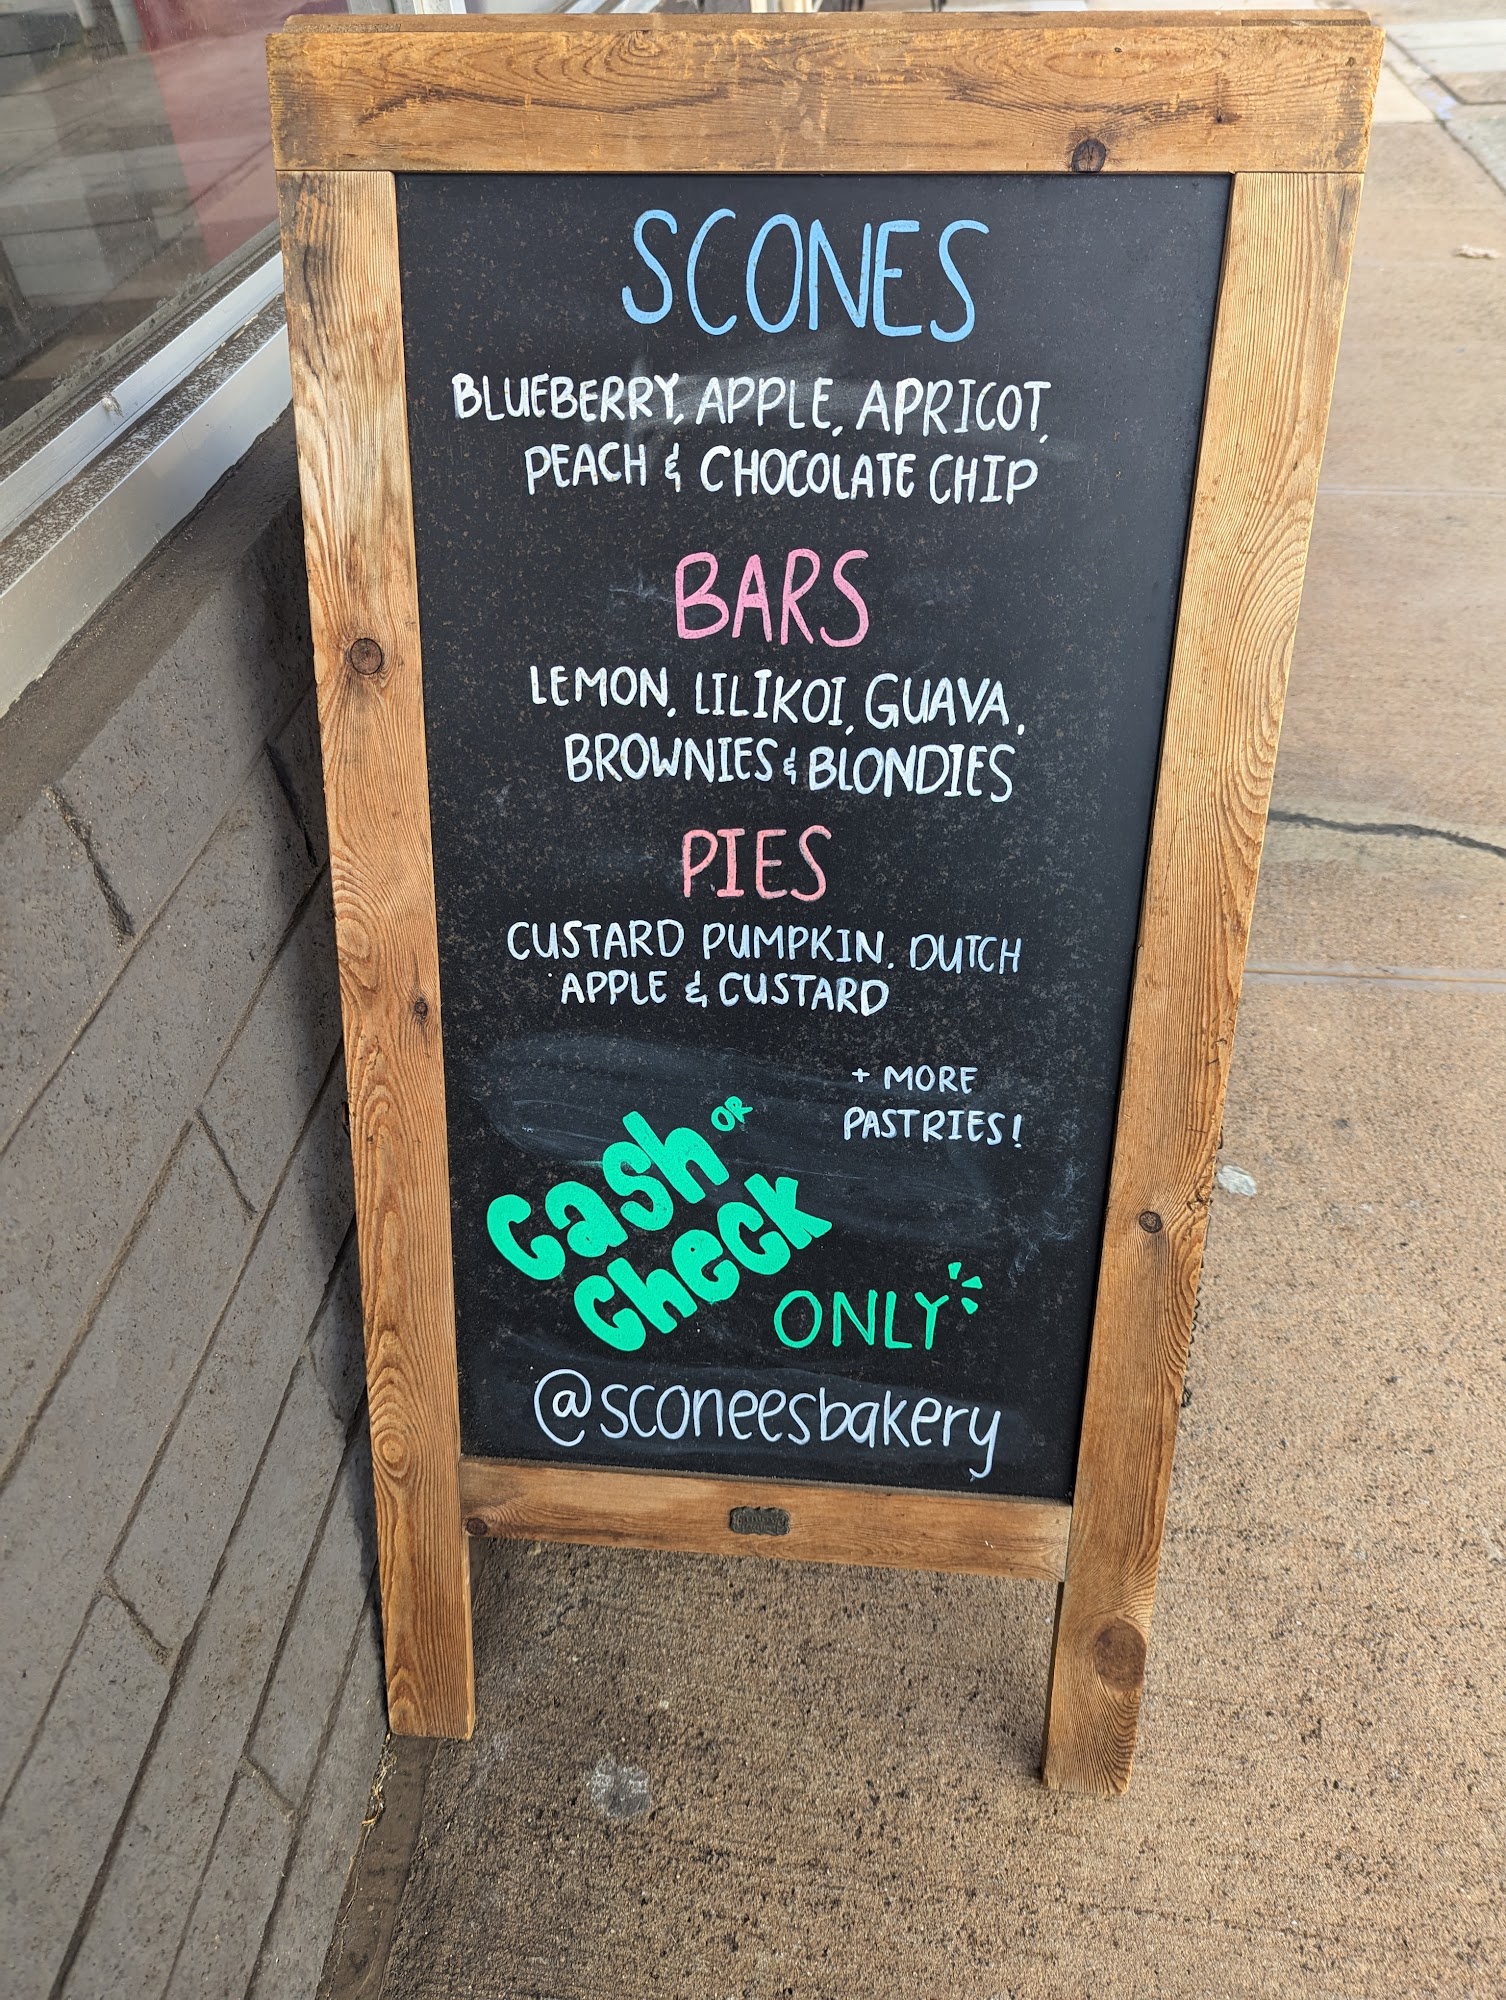 SCONES
BLUEBERRY, APPLE, APRICOT,
PEACH & CHOCOLATE CHIP
BARS
LEMON, LILIKOI, GUAVA,
BROWNIES & BLONDIES
PIES
CUSTARD PUMPKIN, DUTCH
APPLE & CUSTARD
+ MORE
PASTRIES!
Cash OR
Check
ONLY
@sconeesbakery